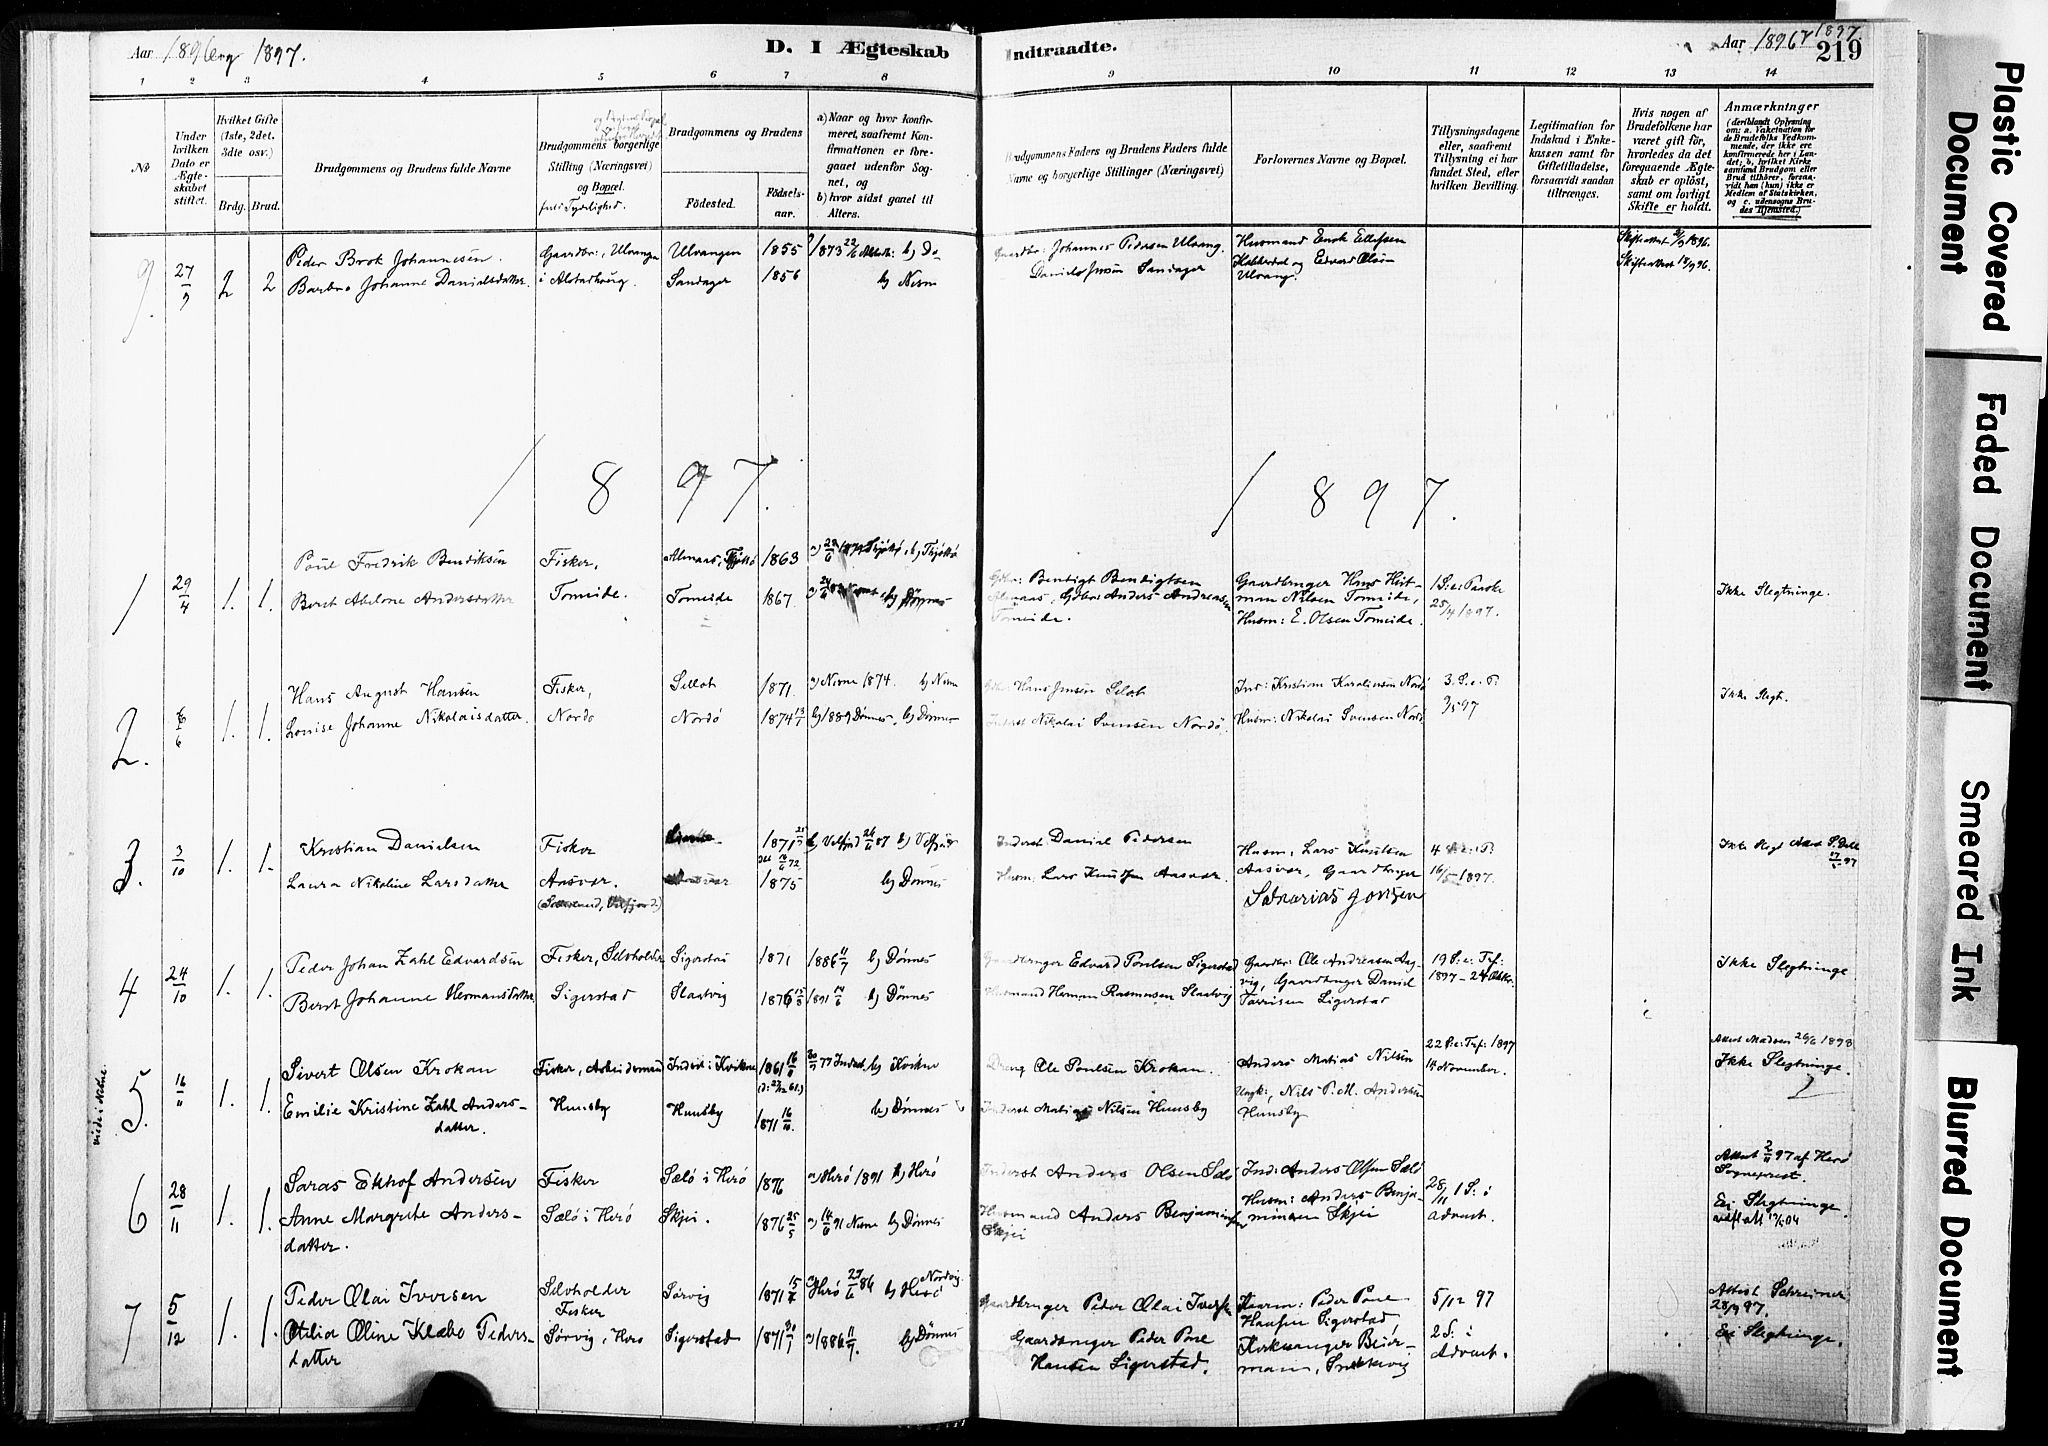 Aar 1896 og 1897.
D. I Ægteskab Indtraadte.
Aar 1896 & 1897.
219
1 2 3 4 5 6 7 8 9 10 11 12 13 14
No
Under hvilken Dato er Ægteskabet stiftet.
Hvilket Gifte (1ste, 2det, 3dte osv.)
Brdg. Brud.
Brudgommens og Brudens fulde Navne
Brudgommens borgerlige Stilling (Næringsvei) og Bopæl.
Brudgommens og Brudens
Fødested. Fødselsaar.
a) Naar og hvor konfirmeret, saafremt Konfirmationen er foregaaet udenfor Sognet, og
b) hvor sidst ganet til Alters.
Brudgommens Faders og Brudens Faders fulde Navne og borgerlige Stillinger (Næringsvei)
Forlovernes Navne og Bopæl.
Tillysningsdagene eller, saafremt Tillysning ei har fundet Sted, efter hvilken Bevilling.
Legitimation for Indskud i Enkekassen samt for Giftetilladelse, forsaavidt saadan tiltrænges.
Hvis nogen af Brudefolkene har været gift før, hvorledes da det foregaaende Ægteskab er opløst, samt om lovligt Skifte er holdt.
Anmærkninger (deriblandt Oplysning om: a. Vaksination for de Brudefolks Vedkommende, der ikke ere konfirmerede her i Landet; b, hvilket Kirkesamfund Brudgom eller Brud tilhører, forsaavidt han (hun) ikke er Medlem af Statskirken, og c. udensogns Brudes Hjemsted.)
9. 27/9 2 2
Peder Brok Johannesen.
Barbro Johanne Danielsdatter.
Gaardbr: Ulvangen i Alstadhaug.
Ulvangen 1855
Sandager 1856
b) Nesne
Gaardbr: Johannes Pedersen Ulvang.
Daniel Jensen Sandager
Husmand Enok Ellefsen
og Edvard Olsen Ulvang.
1897.
1897.
1 29/4 1. 1.
Poul Fredrik Bendiksen
Beret Abelone Andersdatter
Fisker,
Tomeide.
Almaas, Tjøttø 1863
Tomeide 1867.
b) Tjøttø
b) Dønnes
Gdbr: Bendigt Bendigtsen
Almaas, Gdbr: Anders Andreasen
Tomeide.
Gaardbruger Hans Hartman Nilsen Tomeide,
Husm: E. Olsen Tomeide.
1 S: e: Paaske
25/4 1897.
Ikke Slegtninge.
2. 6/6 1. 1.
Hans August Hansen
Louise Johanne Nikolaisdatter.
Fisker,
Nordø
1871.
Nordø 1874 13/7
a) Nesne 1874. b) Nesne
b) 1889 Dønnes. b) Dønnes
Hans Jensen
Inderst Nikolai Svensen Nordø.
Ind: Kristian Karolinusen Nordø
Husm: Nikolai Svensen Nordø
3. S. e. P.
Ikke Slegt.
3. 3/10 1. 1.
Kristian Danielsen
Laura Nikoline Larsdatter
Fisker
Aasvær.
1871
1875
Velfjord 26/6 87 b) Velfjord
b) Dønnes
Inderst Daniel Pedersen
Husm. Lars Knutsen Aasvær.
Husm. Lars Knutsen
Aasvær, Gaardbruger
Sakarias Jonsen
16/5 1897.
4 24/10 1. 1.
Peder Johan Zahl Edvardsen
Beret Johanne Hermansdatter
Fisker, Selvholder
Sigerstad
Sigerstad 1871
Slaatvig 1876
1886 11/7 b) Dønnes
1891 14/6 b) Dønnes
Gaardbruger Edvard Poulsen Sigerstad
Husmand Herman Rasmussen Slaatvig
Gaardbr: Ole Andreasen Aagvig, Gaardbruger Daniel
Tørrisen Sigerstad
19 S: e: Tref:
1897 – 24 Oktbr.
Ikke Slegtninge.
5. 16/11 1. 1.
viede i Nesne.
Sivert Olsen Krokan
Emilie Kristine Zahl Andersdatter.
Fisker, Arbeidsmand
Hunsby
Indset i Kvikne 1861
Hunsby 1871 16/10.
b) Kvikne
b) Dønnes
Dreng Ole Poulsen Krokan.
Inderst Matias Nilsen Hunsby
Anders Matias Nilsen
Ungk: Nils P. M. Andersen
Hunsby
22 S: e: Tref: 1897
14 November.
Ikke Slegtninge.
6 28/11 1. 1.
Saras Ekhof Andersen
Anne Margrete Andersdatter.
Fisker
Sælø i Herø
Sælø i Herø 1876
Skjei. 1876 25/5
a) Herø 1891 b) Herø
a) 14/6 91 Nesne b) Dønnes
Inderst Anders Olsen Sælø
Husmand Anders Benjaminsen
Skjei
Ind: Anders Olsen Sælø
Husm: Anders Benjaminsen Skjei
28/11 1 S: i
Advent.
Attest 2/11 97 af Herø
Sogneprest.
Ei Slegtninge.
7 5/12 1. 1.
Peder Olai Iversen
Otilia Oline Klæbo Pedersdatter
Selvholder
Fisker
Sørvig, Herø
Sørvig 1871
Sigerstad 1871
b) Herø
b) Dønnes
Gaardbruger Peder Olai Iversen
Gaardbruger Peder Pove
Hansen Sigerstad.
Gaardm: Peder Pove
Hansen Sigerstad,
Kirkesanger Beiermann,
5/12 97
2 S: i
Advent.
Attest Schreiner
Ei Slegtninge.
Plastic Covered Document
Faded Document
Smeared Ink
Blurred Document